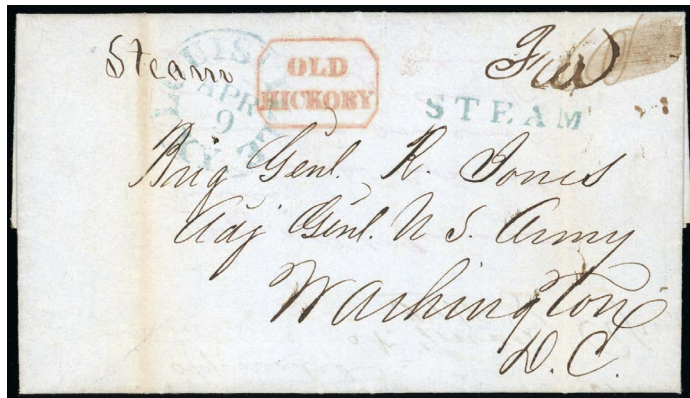 Steam
LOUISVILLE KY.
APR
9
OLD
HICKORY
Free
STEAM
Brig Genl. R. Jones
Adj Genl. U S. Army
Washington
D. C.